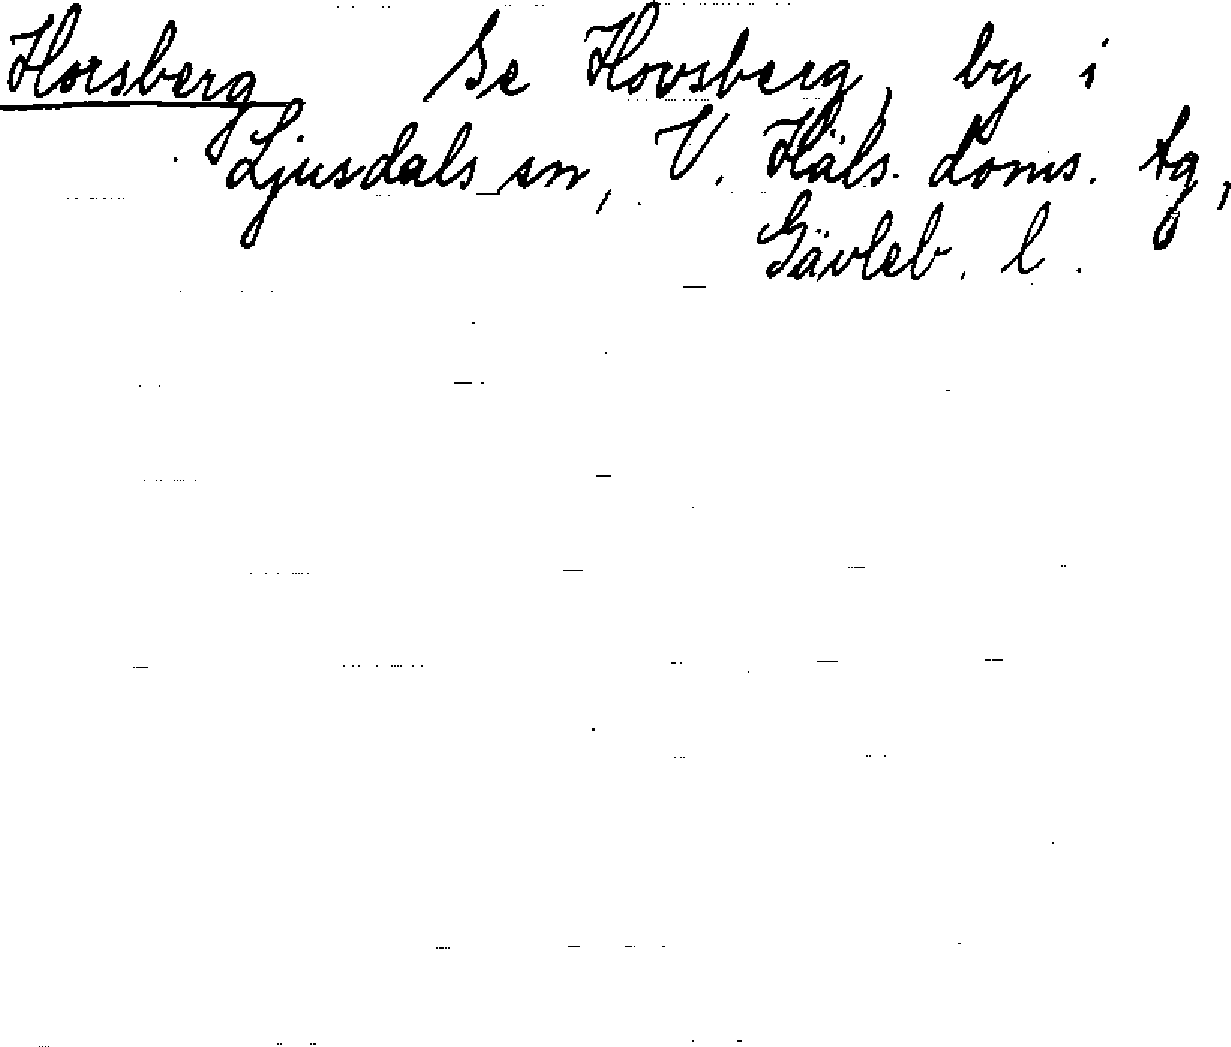 Horsberg Se Hovsberg, by i
Ljusdals sn, V. Häls. doms. tg,
Gävleb. l.